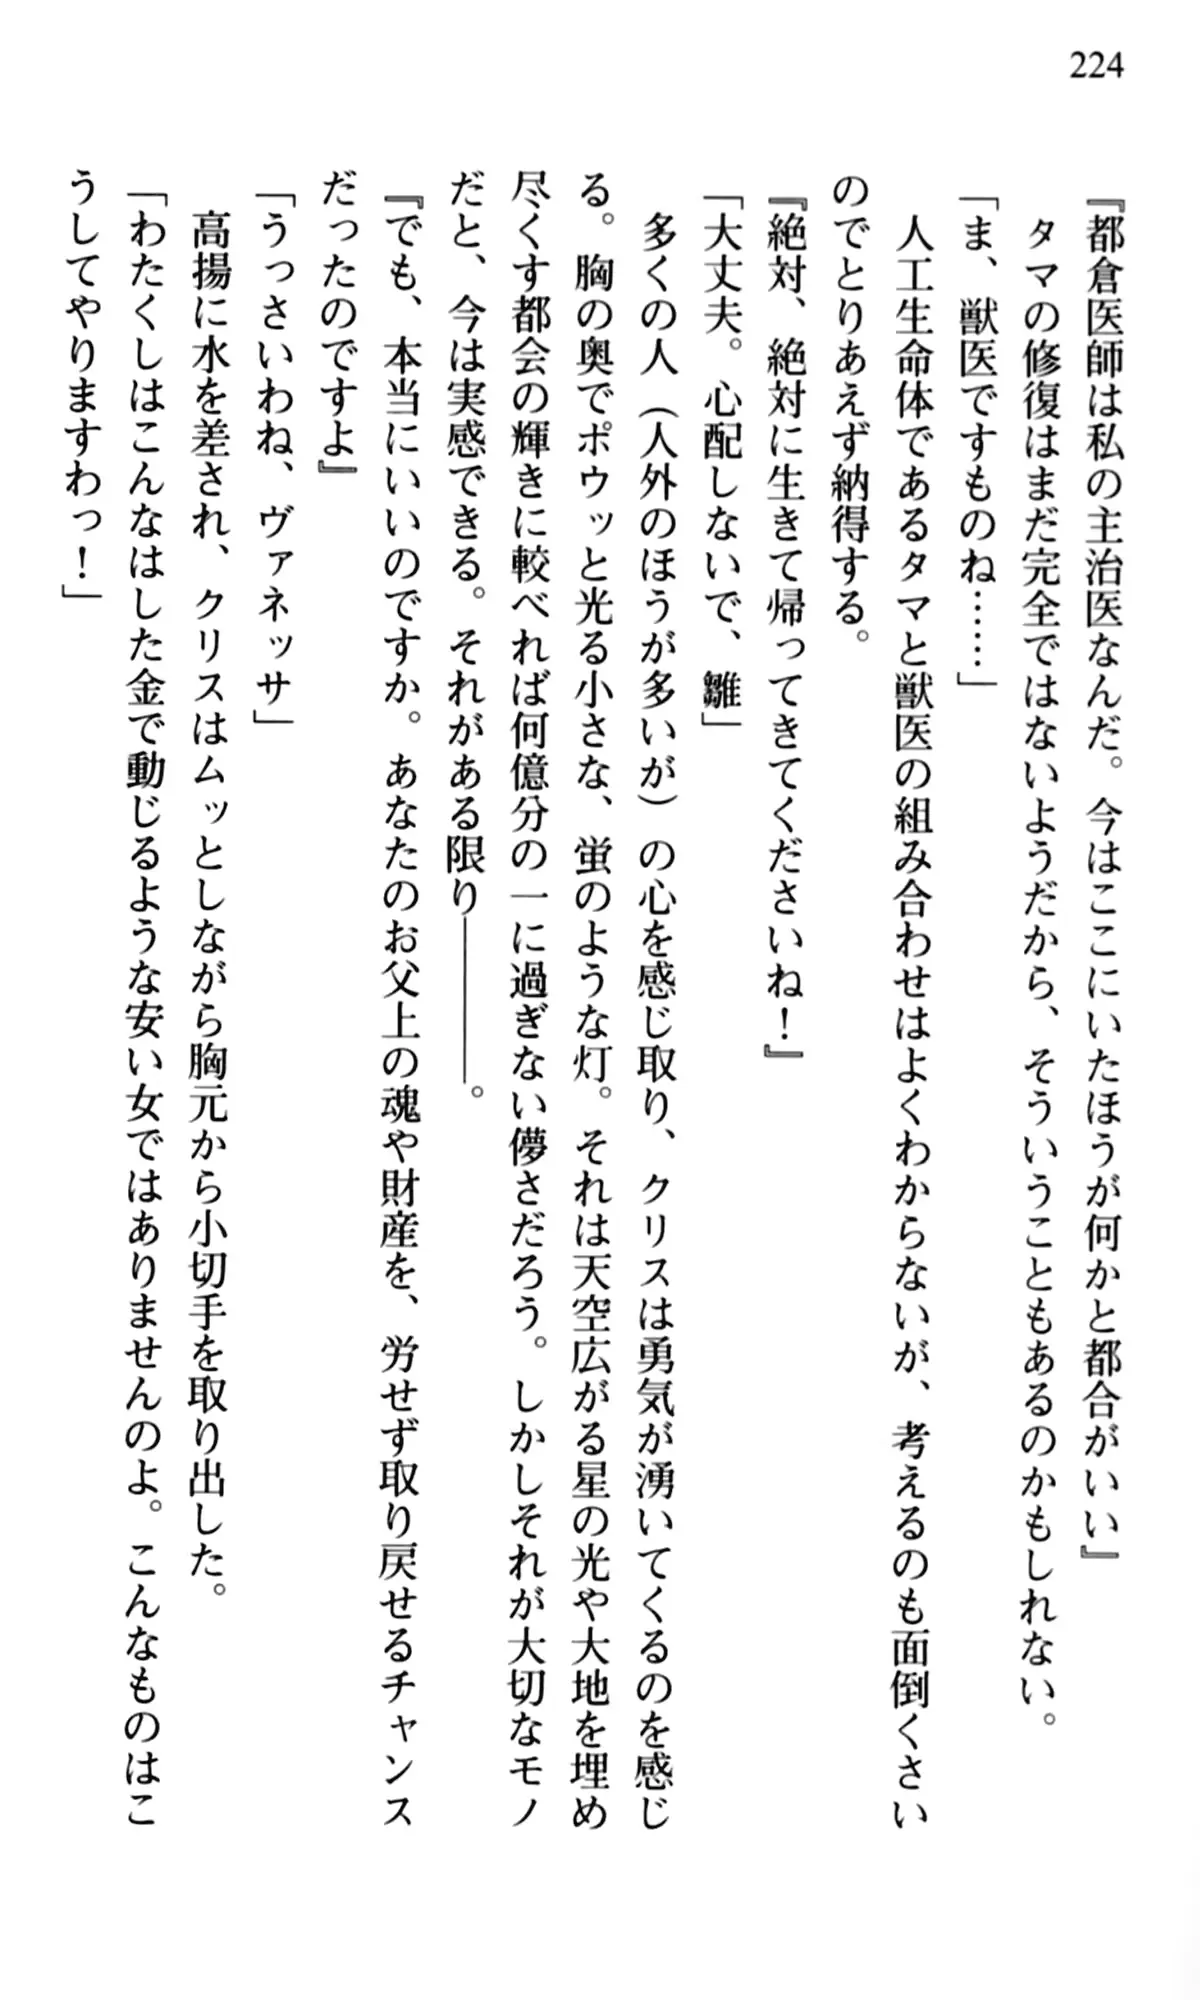 224
『都倉医師は私の主治医なんだ。今はここにいたほうが何かと都合がいい』
　タマの修復はまだ完全ではないようだから、そういうこともあるのかもしれない。
「ま、獣医ですものね……」
　人工生命体であるタマと獣医の組み合わせはよくわからないが、考えるのも面倒くさい
のでとりあえず納得する。
『絶対、絶対に生きて帰ってきてくださいね！』
「大丈夫。心配しないで、雛」
　多くの人（人外のほうが多いが）の心を感じ取り、クリスは勇気が湧いてくるのを感じ
る。胸の奥でポウッと光る小さな、蛍のような灯。それは天空広がる星の光や大地を埋め
尽くす都会の輝きに較べれば何億分の一に過ぎない儚さだろう。しかしそれが大切なモノ
だと、今は実感できる。それがある限り――――。
『でも、本当にいいのですか。あなたのお父上の魂や財産を、労せず取り戻せるチャンス
だったのですよ』
「うっさいわね、ヴァネッサ」
　高揚に水を差され、クリスはムッとしながら胸元から小切手を取り出した。
「わたくしはこんなはした金で動じるような安い女ではありませんのよ。こんなものはこ
うしてやりますわっ！」